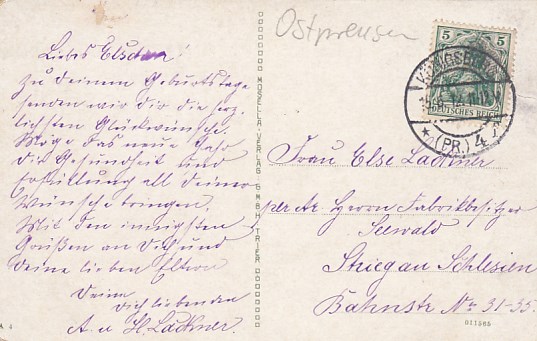 Ostpreusen
Liebes Elschen
zu Deinem Geburtstage
senden wir dir die herz-
lichsten Glückwünsche.
Möge das neue Jahr
dir Gesundheit und
Erfüllung all Deiner
Wünsche bringen.
Mit den innigsten
Grüßen an Dich und
Deine lieben Eltern
Deine
Dich liebenden
A. u. H. Lackner.
A 4
MOSELLA-VERLAG GMBH TRIER
5 5
DEUTSCHES REICH
KÖNIGSBERG
* (PR.) 4
Frau Else Lackner
per Ar. Herrn Fabrikbesitzer
Seewald
Striegau Schlesien
Bahnstr. No 31-35.
011565